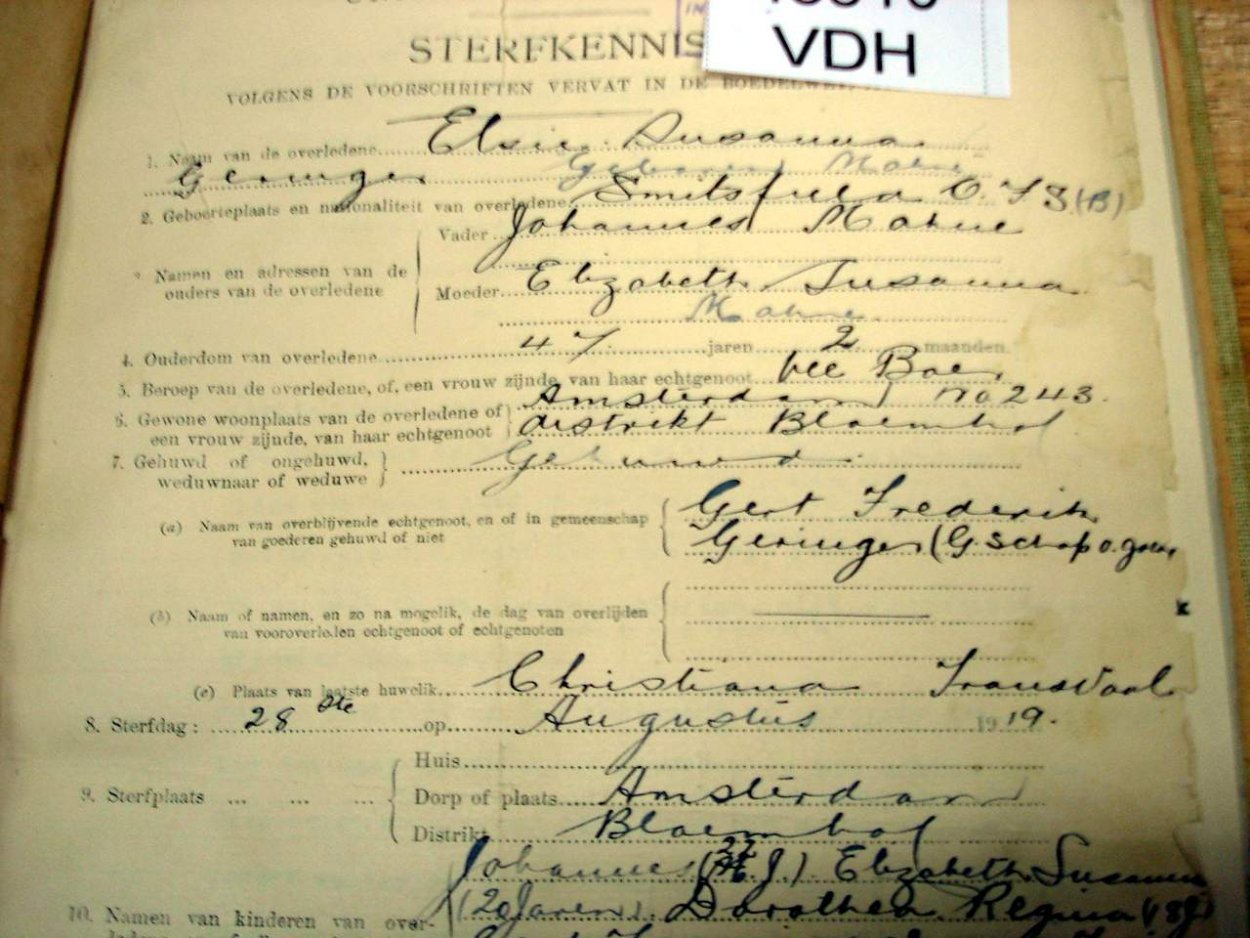 VDH
STERFKENNIS
VOLGENS DE VOORSCHRIFTEN VERVAT IN DE
1. Naam van de overledene Elsie Susanna
Geringer Geboren Mahne
2. Geboorteplaats en nationaliteit van overledene Smitsfield O.V.S (B)
Vader Johannes Mahne
Namen en adressen van de
ouders van de overledene
Moeder Elizabeth Susanna
Mahne
4. Ouderdom van overledene 47 jaren 2 maanden.
5. Beroep van de overledene, of, een vrouw zijnde, van haar echtgenoot Vee Boer
6. Gewone woonplaats van de overledene of Amsterdam no 243.
een vrouw zijnde, van haar echtgenoot distrikt Bloemhof
7. Gehuwd of ongehuwd, Gehuwd
weduwnaar of weduwe
(a) Naam van overblijvende echtgenoot, en of in gemeenschap Gert Frederik
van goederen gehuwd of niet Geringer (G.schap v.
(b) Naam of namen, en zo na mogelik, de dag van overlijden
van vooroverleden echtgenoot of echtgenoten
(c) Plaats van laatste huwelik Christiana Transvaal
8. Sterfdag: 28 ste op Augustus 1919.
Huis
9. Sterfplaats ... ... ... Dorp of plaats Amsterdam
Distrikt Bloemhof
Johannes (22 J.) Elizabeth Susanna
10. Namen van kinderen van over- (20 Jaren) Dorothea Regina (18J)